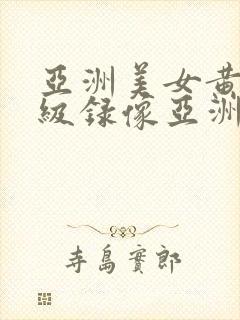 亞洲美女黃
級録像亞洲
寺島實郎